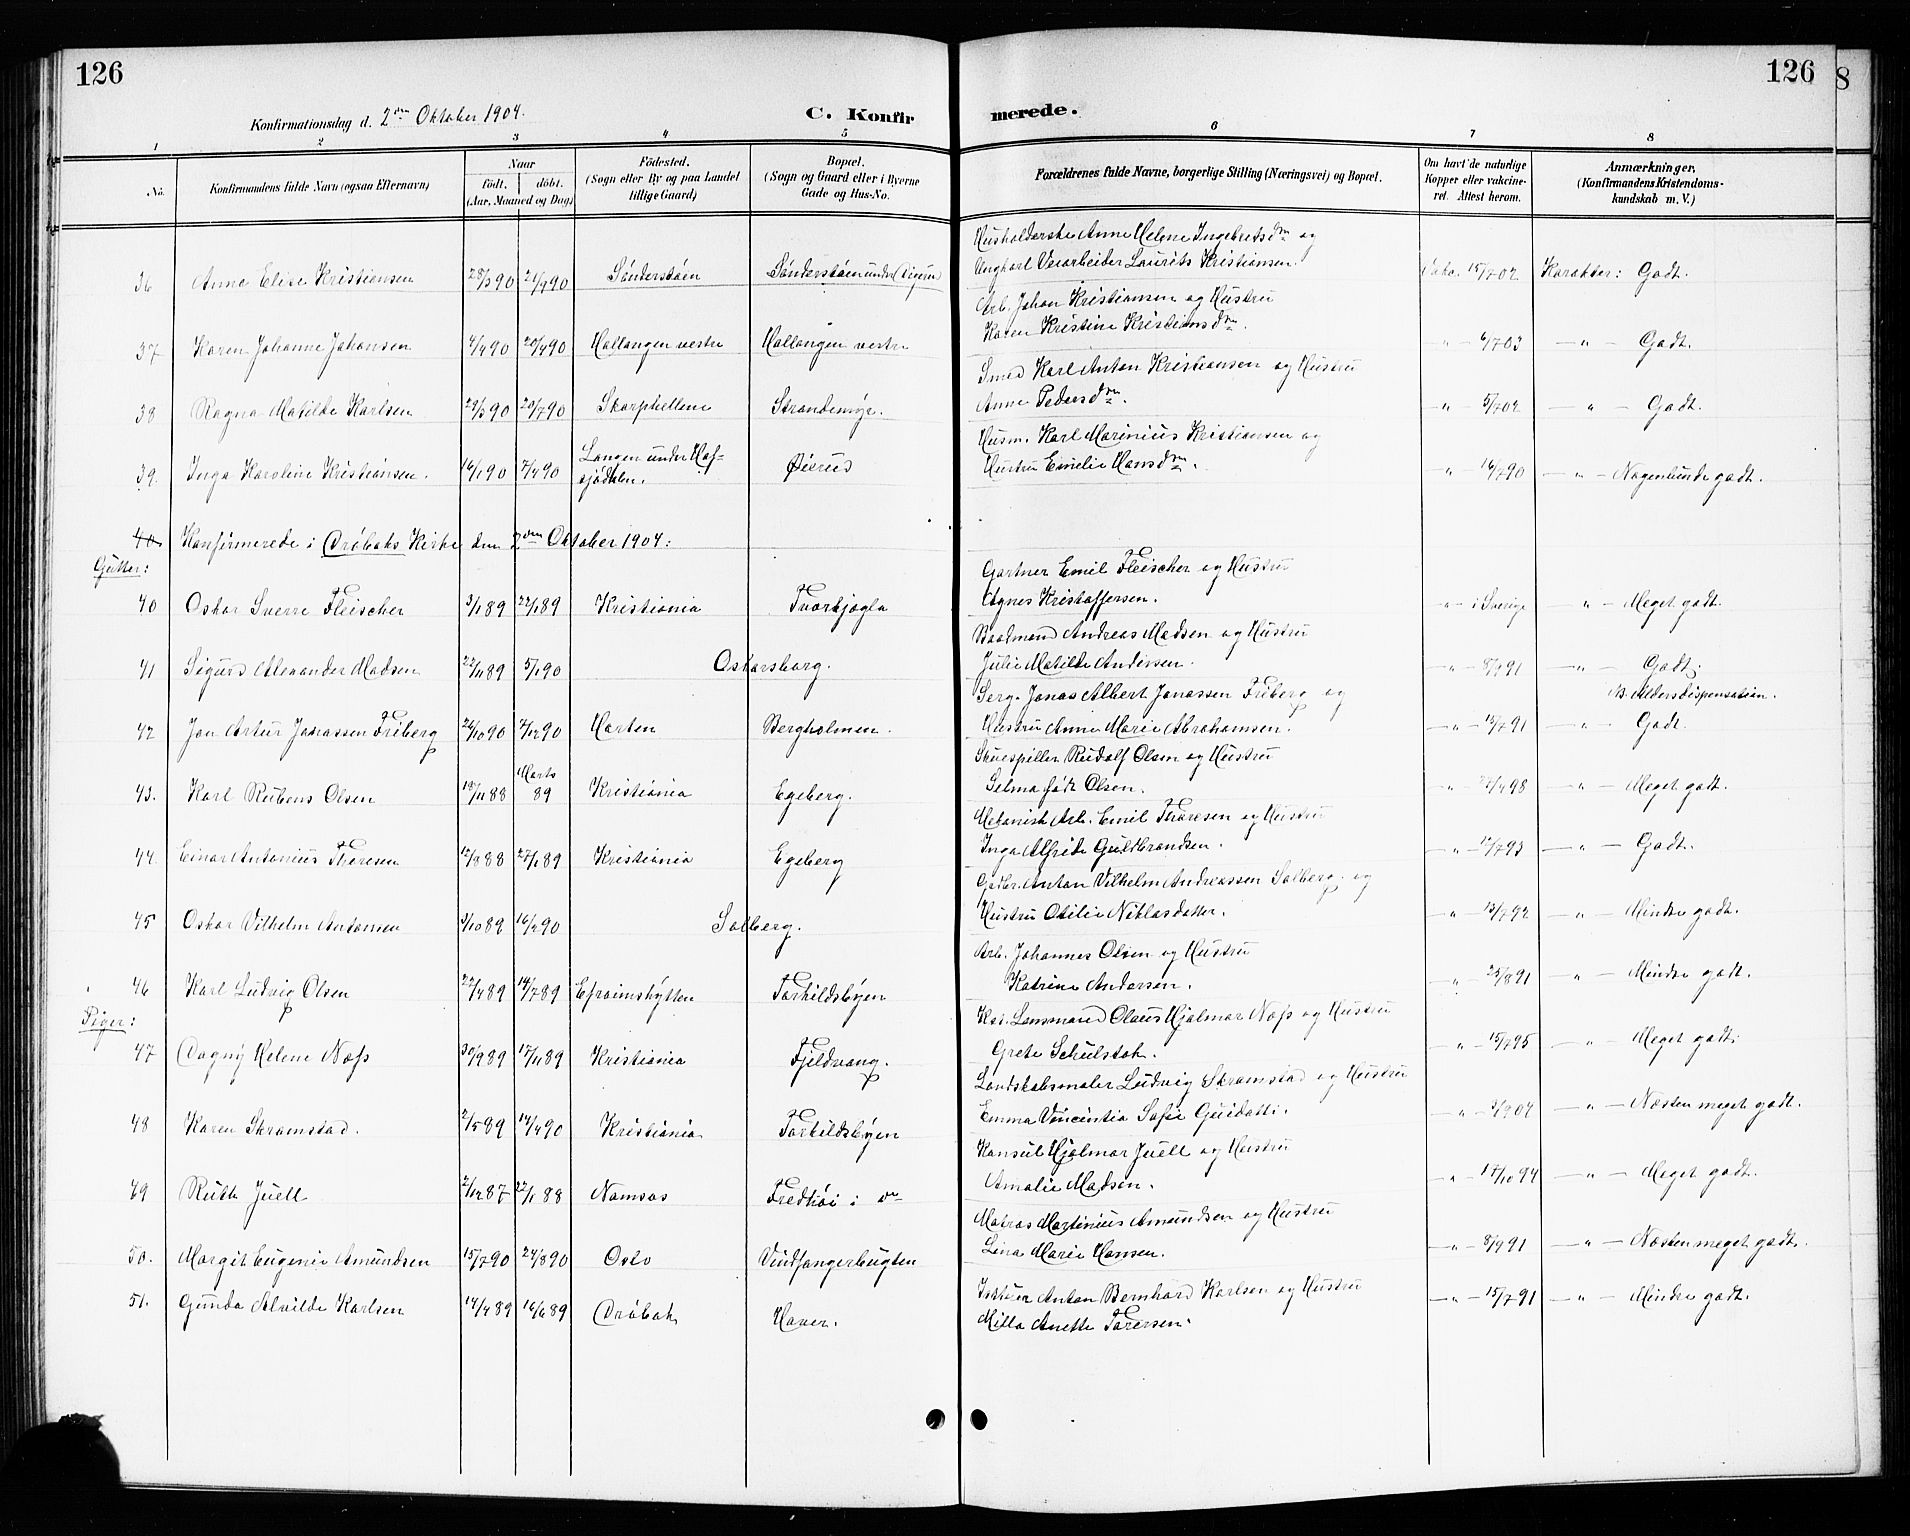 126
126
8
Konfirmationsdag d. 2den Oktober 1904.
C. Konfirmerede.
1 2 3 4 5 6 7 8
No.
Konfirmandens fulde Navn (ogsaa Efternavn)
Naar
født. døbt.
(Aar, Maaned og Dag)
Fødested.
(Sogn eller By og paa Landet
tillige Gaard)
Bopæl.
(Sogn og Gaard eller i Byerne
Gade og Hus-No.
Forældrenes fulde Navne, borgerlige Stilling (Næringsvei) og Bopæl.
Om havt de naturlige
Kopper eller vakcine-
ret. Attest herom.
Anmærkninger,
(Konfirmandens Kristendoms-
kundskab m. V.)
Husholderske Anne Helene Ingebretsdn og
36 Anna Elise Kristiansen 28/3 90 21/9 90 Sønderstøen Sønderstøen under Digerud Ungkarl Veiarbeider Laurits Kristiansen. 15/7 02 Karakter: Godt.
Arb. Johan Kristiansen og Hustru
37 Karen Johanne Johansen 4/4 90 20/4 90 Hallangen vestre Hallangen vestre Karen Kristine Kristiansdn. " 6/7 03 " Godt.
Smed Karl Anton Kristiansen og Hustru
38 Ragna Matilde Karlsen 29/3 90 20/7 90 Skorphellene Strandemyr. Anne Pedersdn. " 5/7 02 " Godt.
Husm. Karl Marinius Kristiansen og
39. Inga Karoline Kristiansen. 16/1 90 7/4 90 Langen under Haf-
sjødalen. Øierud Hustru Emelie Hansdn. " 16/7 90 " Nogenlunde godt.
40 Konfirmerede i Drøbaks Kirke den 2den Oktober 1904:
Gutter:
Gartner Emil Fleischer og Hustru
40 Oskar Sverre Fleischer 3/1 89 22/1 89 Kristiania Torkjøgla Agnes Kristoffersen. " i Sverige " Meget godt.
Baadmand Andreas Madsen og Hustru
41 Sigurd Alexander Madsen 22/11 89 5/1 90 Oskarsborg. Julie Matilde Andersen. " 8/9 91 " Godt;
Serg. Jonas Albert Jonassen Friberg og N. Aldersdispensation.
42 Jon Artur Jonassen Friberg 26/10 90 7/12 90 Horten Bergholmen. Hustru Anne Marie Abrahamsen. " 15/7 91 " Godt.
Skuespiller Rudolf Olsen og Hustru
43. Karl Rubens Olsen 18/11 88 Marts
89 Kristiania Egeberg. Selma født Olsen. " 4 98 " Meget godt.
Mekanisk Arb. Emil Thoresen og Hustru
44. Einar Antonius Thoresen 12/8 88 27/1 89 Kristiania Egeberg Inga Alfride Guldbrandsen. " 12/7 93 " Godt.
Gadbr. Anton Vilhelm Andreassen Solberg. og
45 Oskar Vilhelm Antonsen 3/10 89 16/2 90 Solberg. Hustru Otilie Niklasdatter. " 13/7 92 " Mindre godt.
Arb. Johannes Olsen og Hustru
46 Karl Ludvig Olsen 22/4 89 14/7 89 Efraimshytten Torkildsbyen Katrine Andersen. " 25/8 91 " Mindre godt.
Piger:
Lensmand Claus Hjalmar Næss og Hustru
47 Dagny Helene Næss 30/9 89 17/11 89 Kristiania Fjeldvang. Grete Schulstok. " 15/7 95 " Meget godt.
Landskabsmaler Ludvig Skramstad og Hustru
48 Karen Skramstad. 2/5 89 14/4 90 Kristiania Torkildsbyen Emma Vincentia Sofie Guidotti. " /9 04 " Næsten meget godt.
Konsul Hjalmar Juell og Hustru
49 Ruth Juell 2/12 87 22/1 88 Namsos Fredhøi i do Amalie Madsen. " 17/10 94 " Meget godt.
Matros Martinius Amundsen og Hustru
50. Margit Eugenie Amundsen 15/7 90 24/8 90 Oslo Vindfangerbugten Lina Marie Hansen. " 8/9 91 " Næsten meget godt.
Anton Bernhard Karlsen og Hustru
51. Gunda Alvilde Karlsen 14/4 89 16/6 89 Drøbak Haver. Milla Anette Toresen. " 15/7 91 " Mindre godt.